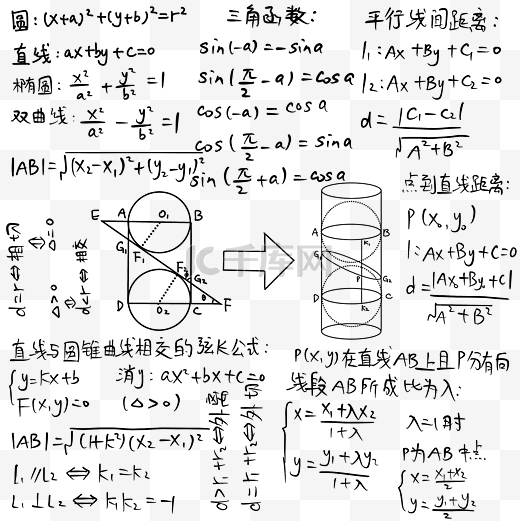 圆:(x+a)²+(y+b)²=r²
直线:ax+by+c=0
椭圆: x²/a² + y²/b² =1
双曲线: x²/a² - y²/b² =1
|AB|=√(x₂-x₁)²+(y₂-y₁)²
三角函数:
sin(-a)=-sina
sin(π/2-a)=cosa
cos(-a)=cosa
cos(π/2-a)=sina
sin(π/2+a)=cosa
平行线间距离:
l₁:Ax+By+C₁=0
l₂:Ax+By+C₂=0
d=|C₁-C₂|/√A²+B²
点到直线距离:
P(x₀,y₀)
l:Ax+By+C=0
d=|Ax₀+By₀+C|/√A²+B²
d=r⇔相切
⇔△=0
d<r⇔相交
⇔△>0
E A O₁ B
G₁ F₁ F₂ G₂
D O₂ C F
θ
A K₁ B
G₁ P G₂
D K₂ C
IC千库网
直线与圆锥曲线相交的弦长公式:
{y=kx+b
F(x,y)=0
消y:ax²+bx+c=0
(△>0)
|AB|=√(1+k²)(x₂-x₁)²
l₁∥l₂⇔k₁=k₂
l₁⊥l₂⇔k₁k₂=-1
d>r₁+r₂⇔外离
d=r₁+r₂⇔外切
P(x,y)在直线AB上且P分有向
线段AB所成比为λ:
{x=x₁+λx₂/1+λ
y=y₁+λy₂/1+λ
λ=1时
P为AB中点
{x=x₁+x₂/2
y=y₁+y₂/2